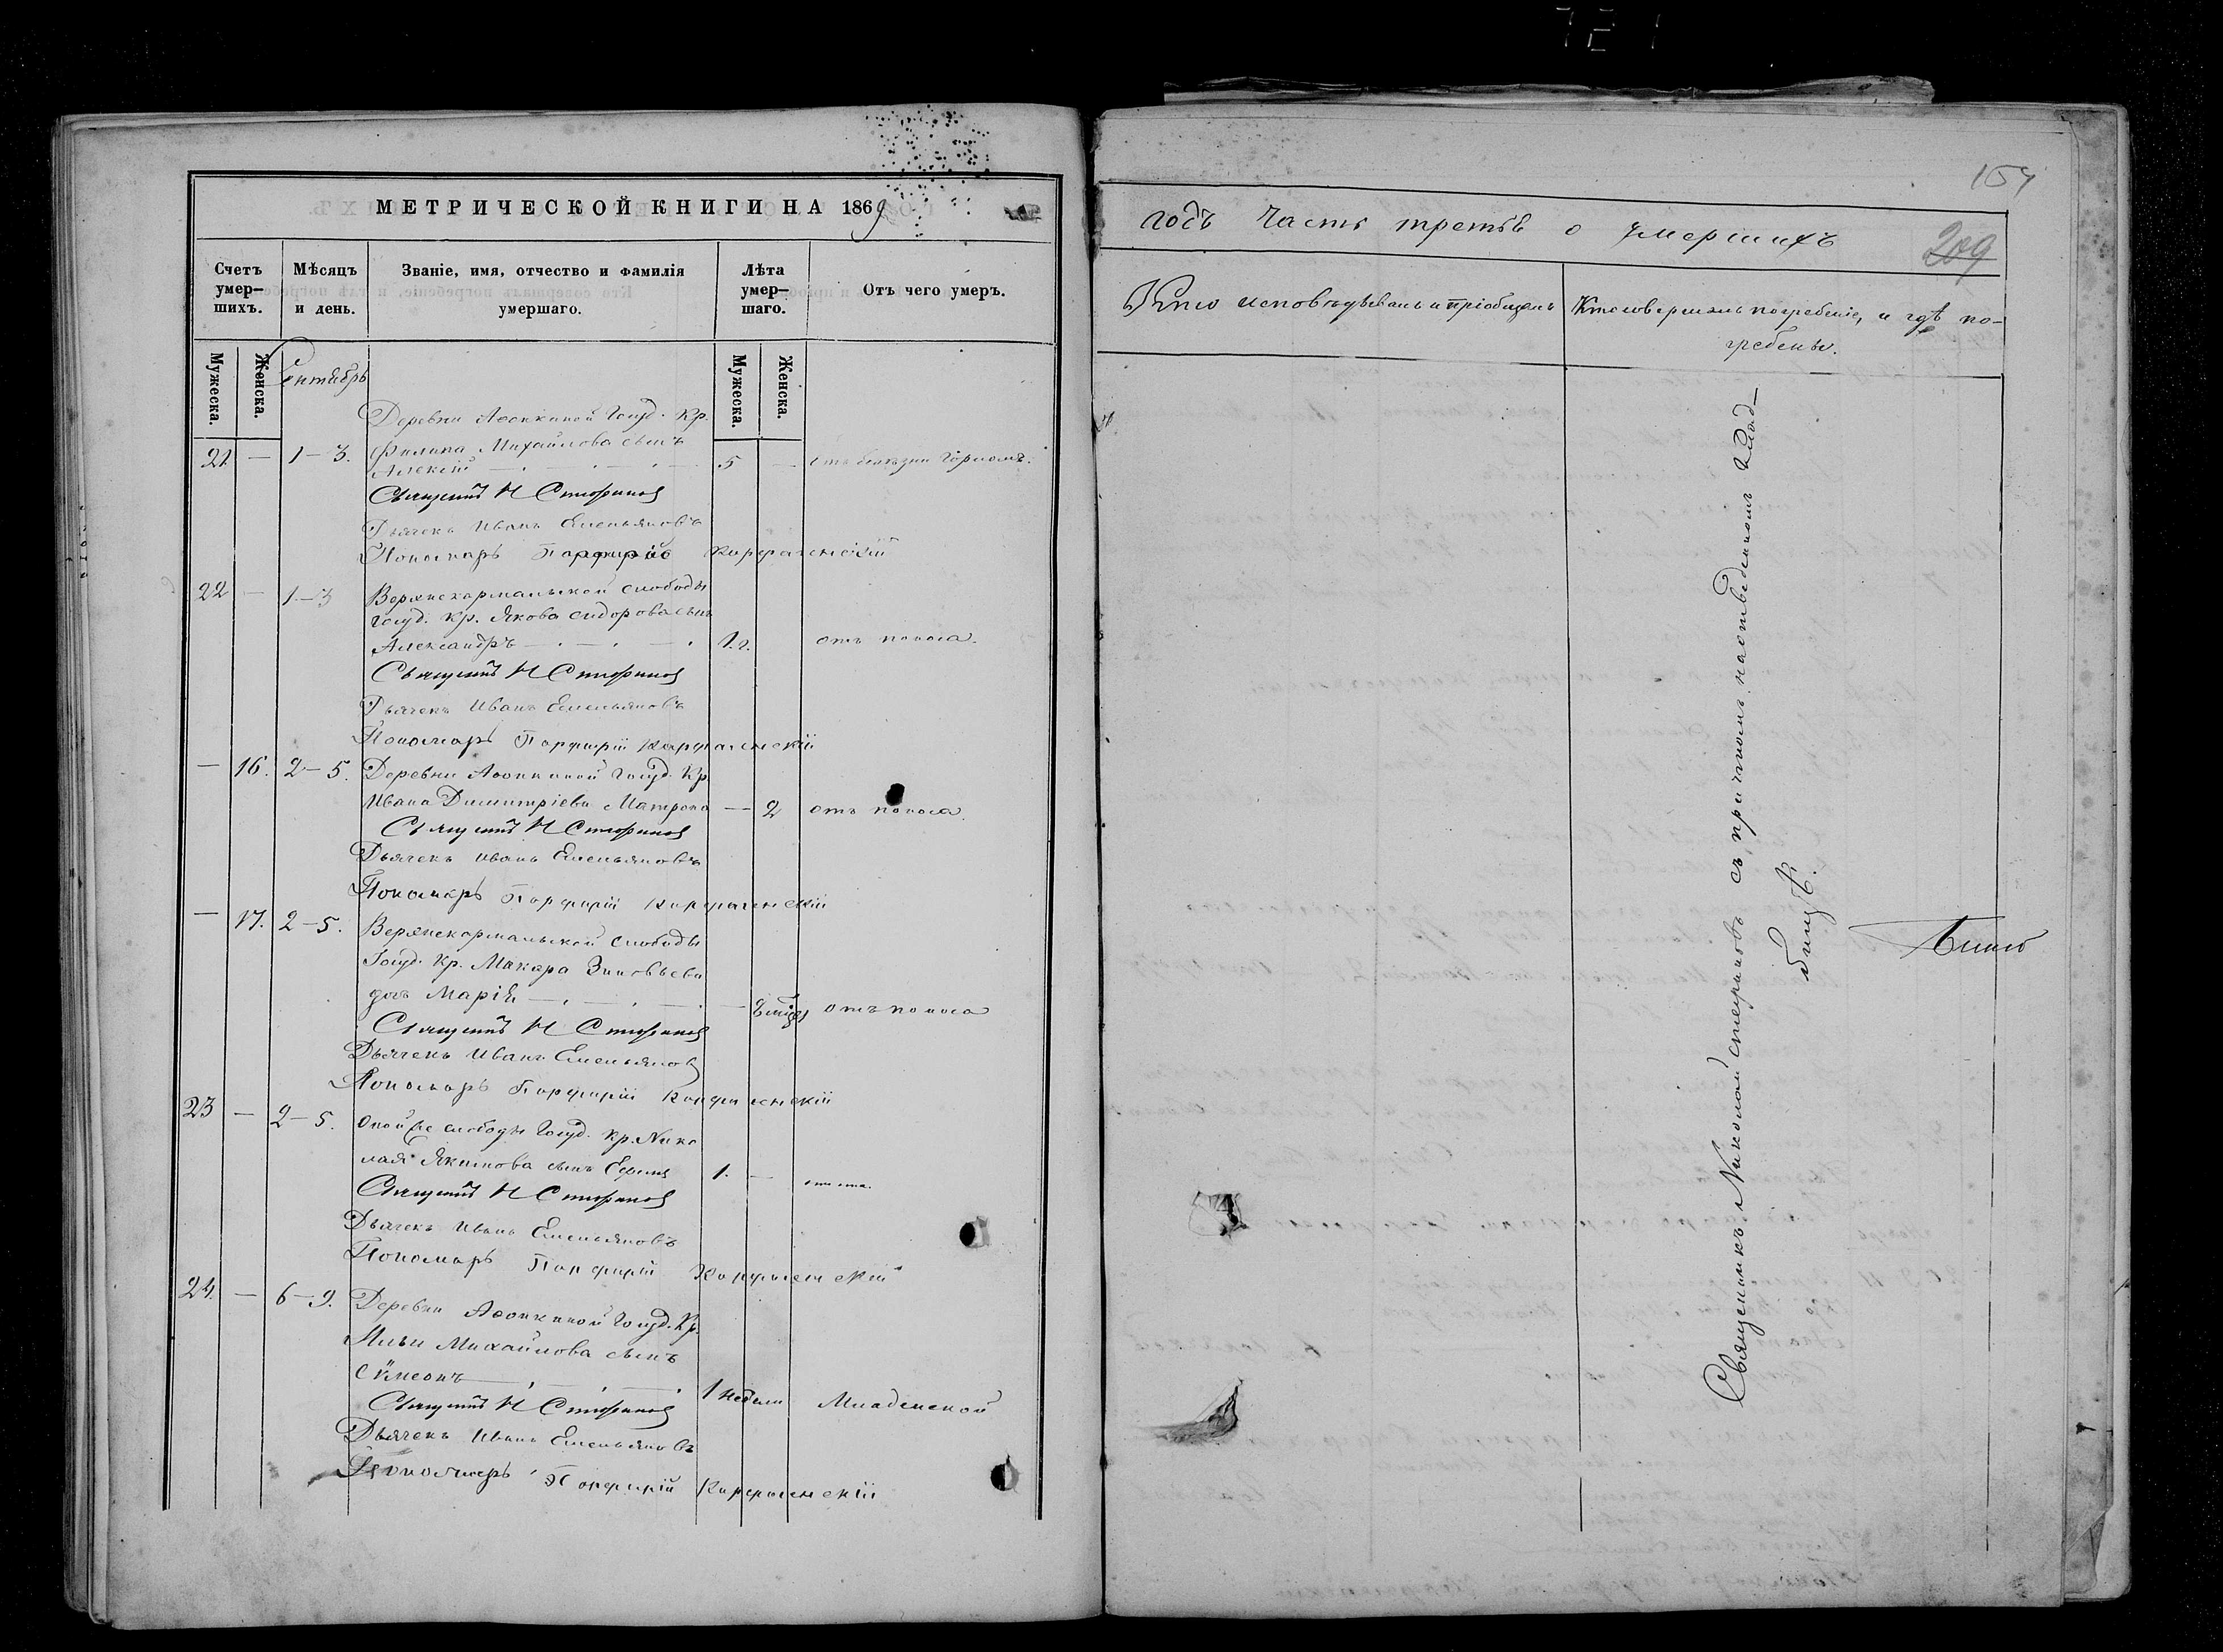 МЕТРИЧЕСКОЙ КНИГИ НА 1869
Счетъ умер-шихъ.
Мѣсяцъ и день.
Званіе, имя, отчество и фамилія умершаго.
Лѣта умер-шаго.
Отъ чего умеръ.
Мужеска.
Женска.
Мужеска.
Женска.
Сентябрь
Деревни Аѳонкиной Госуд. Кр.
21. — 1—3. Филипа Михайлова сынъ
Алексій 5 — отъ болѣзни горломъ.
Священникъ Н Стефановъ
Дьячекъ Иванъ Емельяновъ
Пономарь Порфирій Карфагенскій
22 — 1—3 Верхнекармальской слободы
Госуд. Кр. Якова Сидорова сынъ
Александръ 1.г. отъ поноса.
Священникъ Н Стефановъ
Дьячекъ Иванъ Емельяновъ
Пономарь Порфирій Карфагенскій
— 16. 2—5. Деревни Аѳонкиной Госуд. Кр.
Ивана Димитріева Матрона — 2 отъ поноса.
Священникъ Н Стефановъ
Дьячекъ Иванъ Емельяновъ
Пономарь Порфирій Карфагенскій
— 17. 2—5. Верхнекармальской слободы
Госуд. Кр. Макара Зиновьева
дочь Марія — отъ поноса
Священникъ Н Стефановъ
Дьячекъ Иванъ Емельяновъ
Пономарь Порфирій Карфагенскій
23 — 2—5. Оной же слободы Госуд. Кр. Нико
лая Якимова сынъ Ефимъ 1. —
Священникъ Н Стефановъ
Дьячекъ Иванъ Емельяновъ
Пономарь Порфирій Карфагенскій
24. — 6—9. Деревни Аѳонкиной Госуд. Кр.
Ильи Михайлова сынъ
Сѵмеонъ 1 недели Младенской
Священникъ Н Стефановъ
Дьячекъ Иванъ Емельяновъ
Пономарь Порфирій Карфагенскій
годъ часть третья о умершихъ
209
Кто исповѣдывалъ и пріобщалъ
Кто совершалъ погребеніе, и гдѣ по-
гребены.
Священникъ Николай Стефановъ съ причтомъ на отведенномъ клад-
бищѣ.